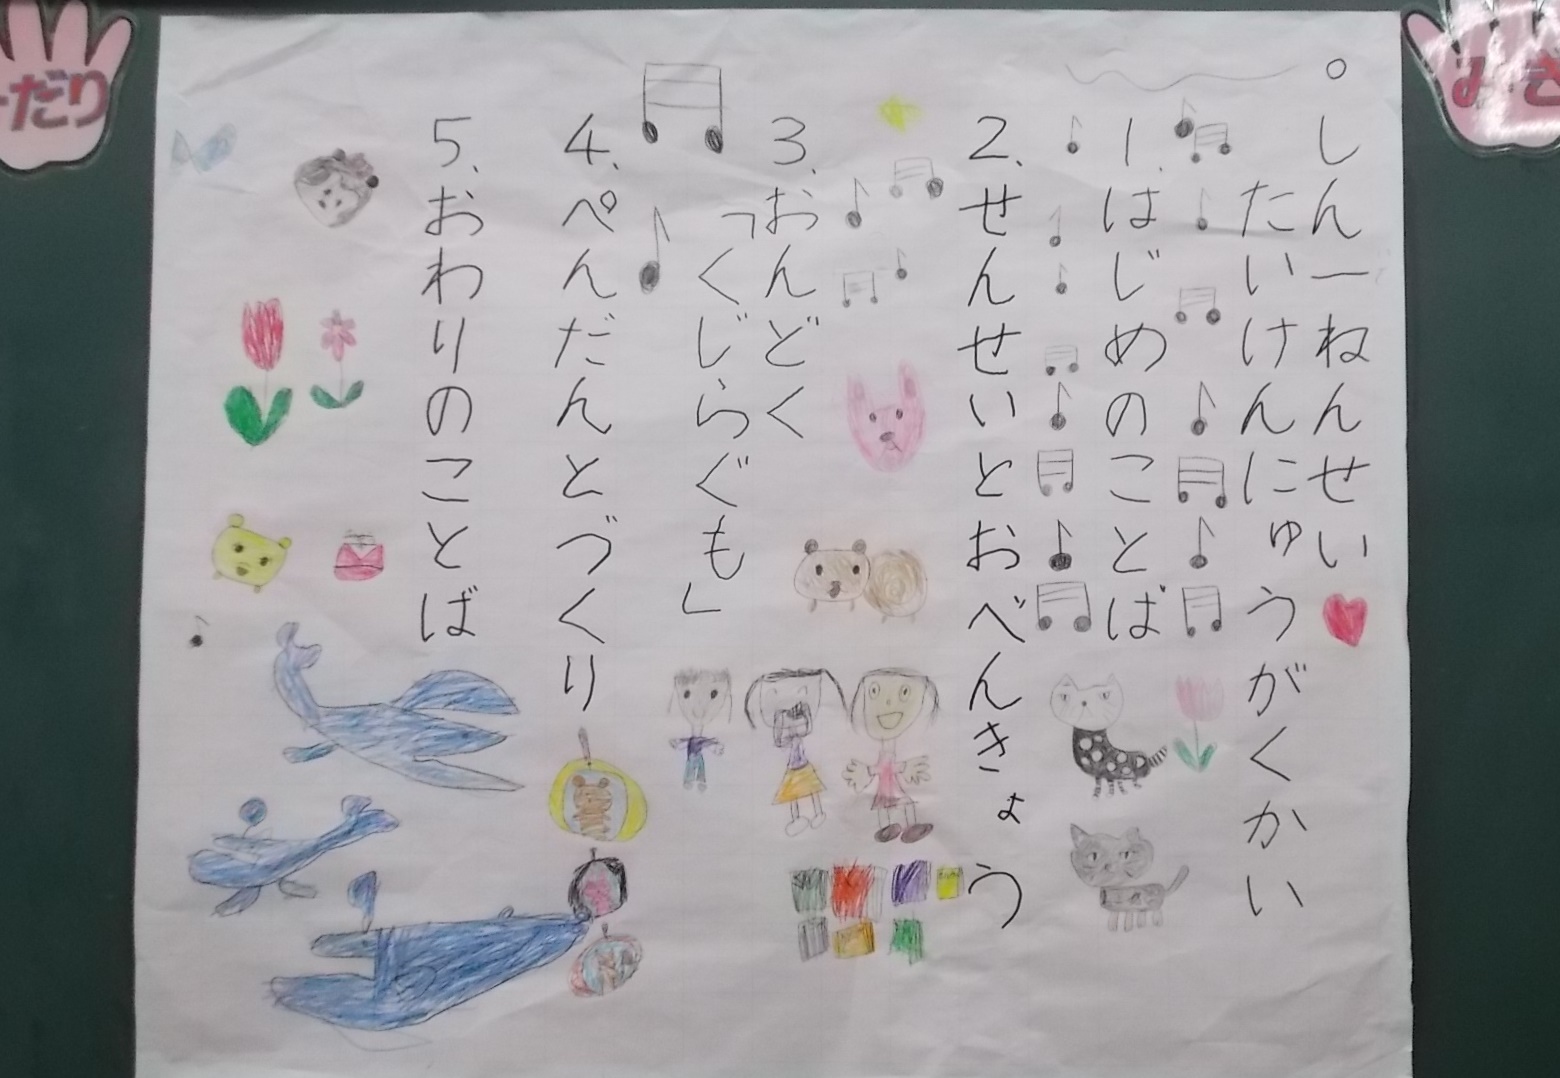 みぎ
。しん一ねんせい
たいけんにゅうがくかい
1.はじめのことば
2.せんせいとおべんきょう
3.おんどく
「くじらぐも」
4.ぺんだんとづくり
5.おわりのことば
ひだり